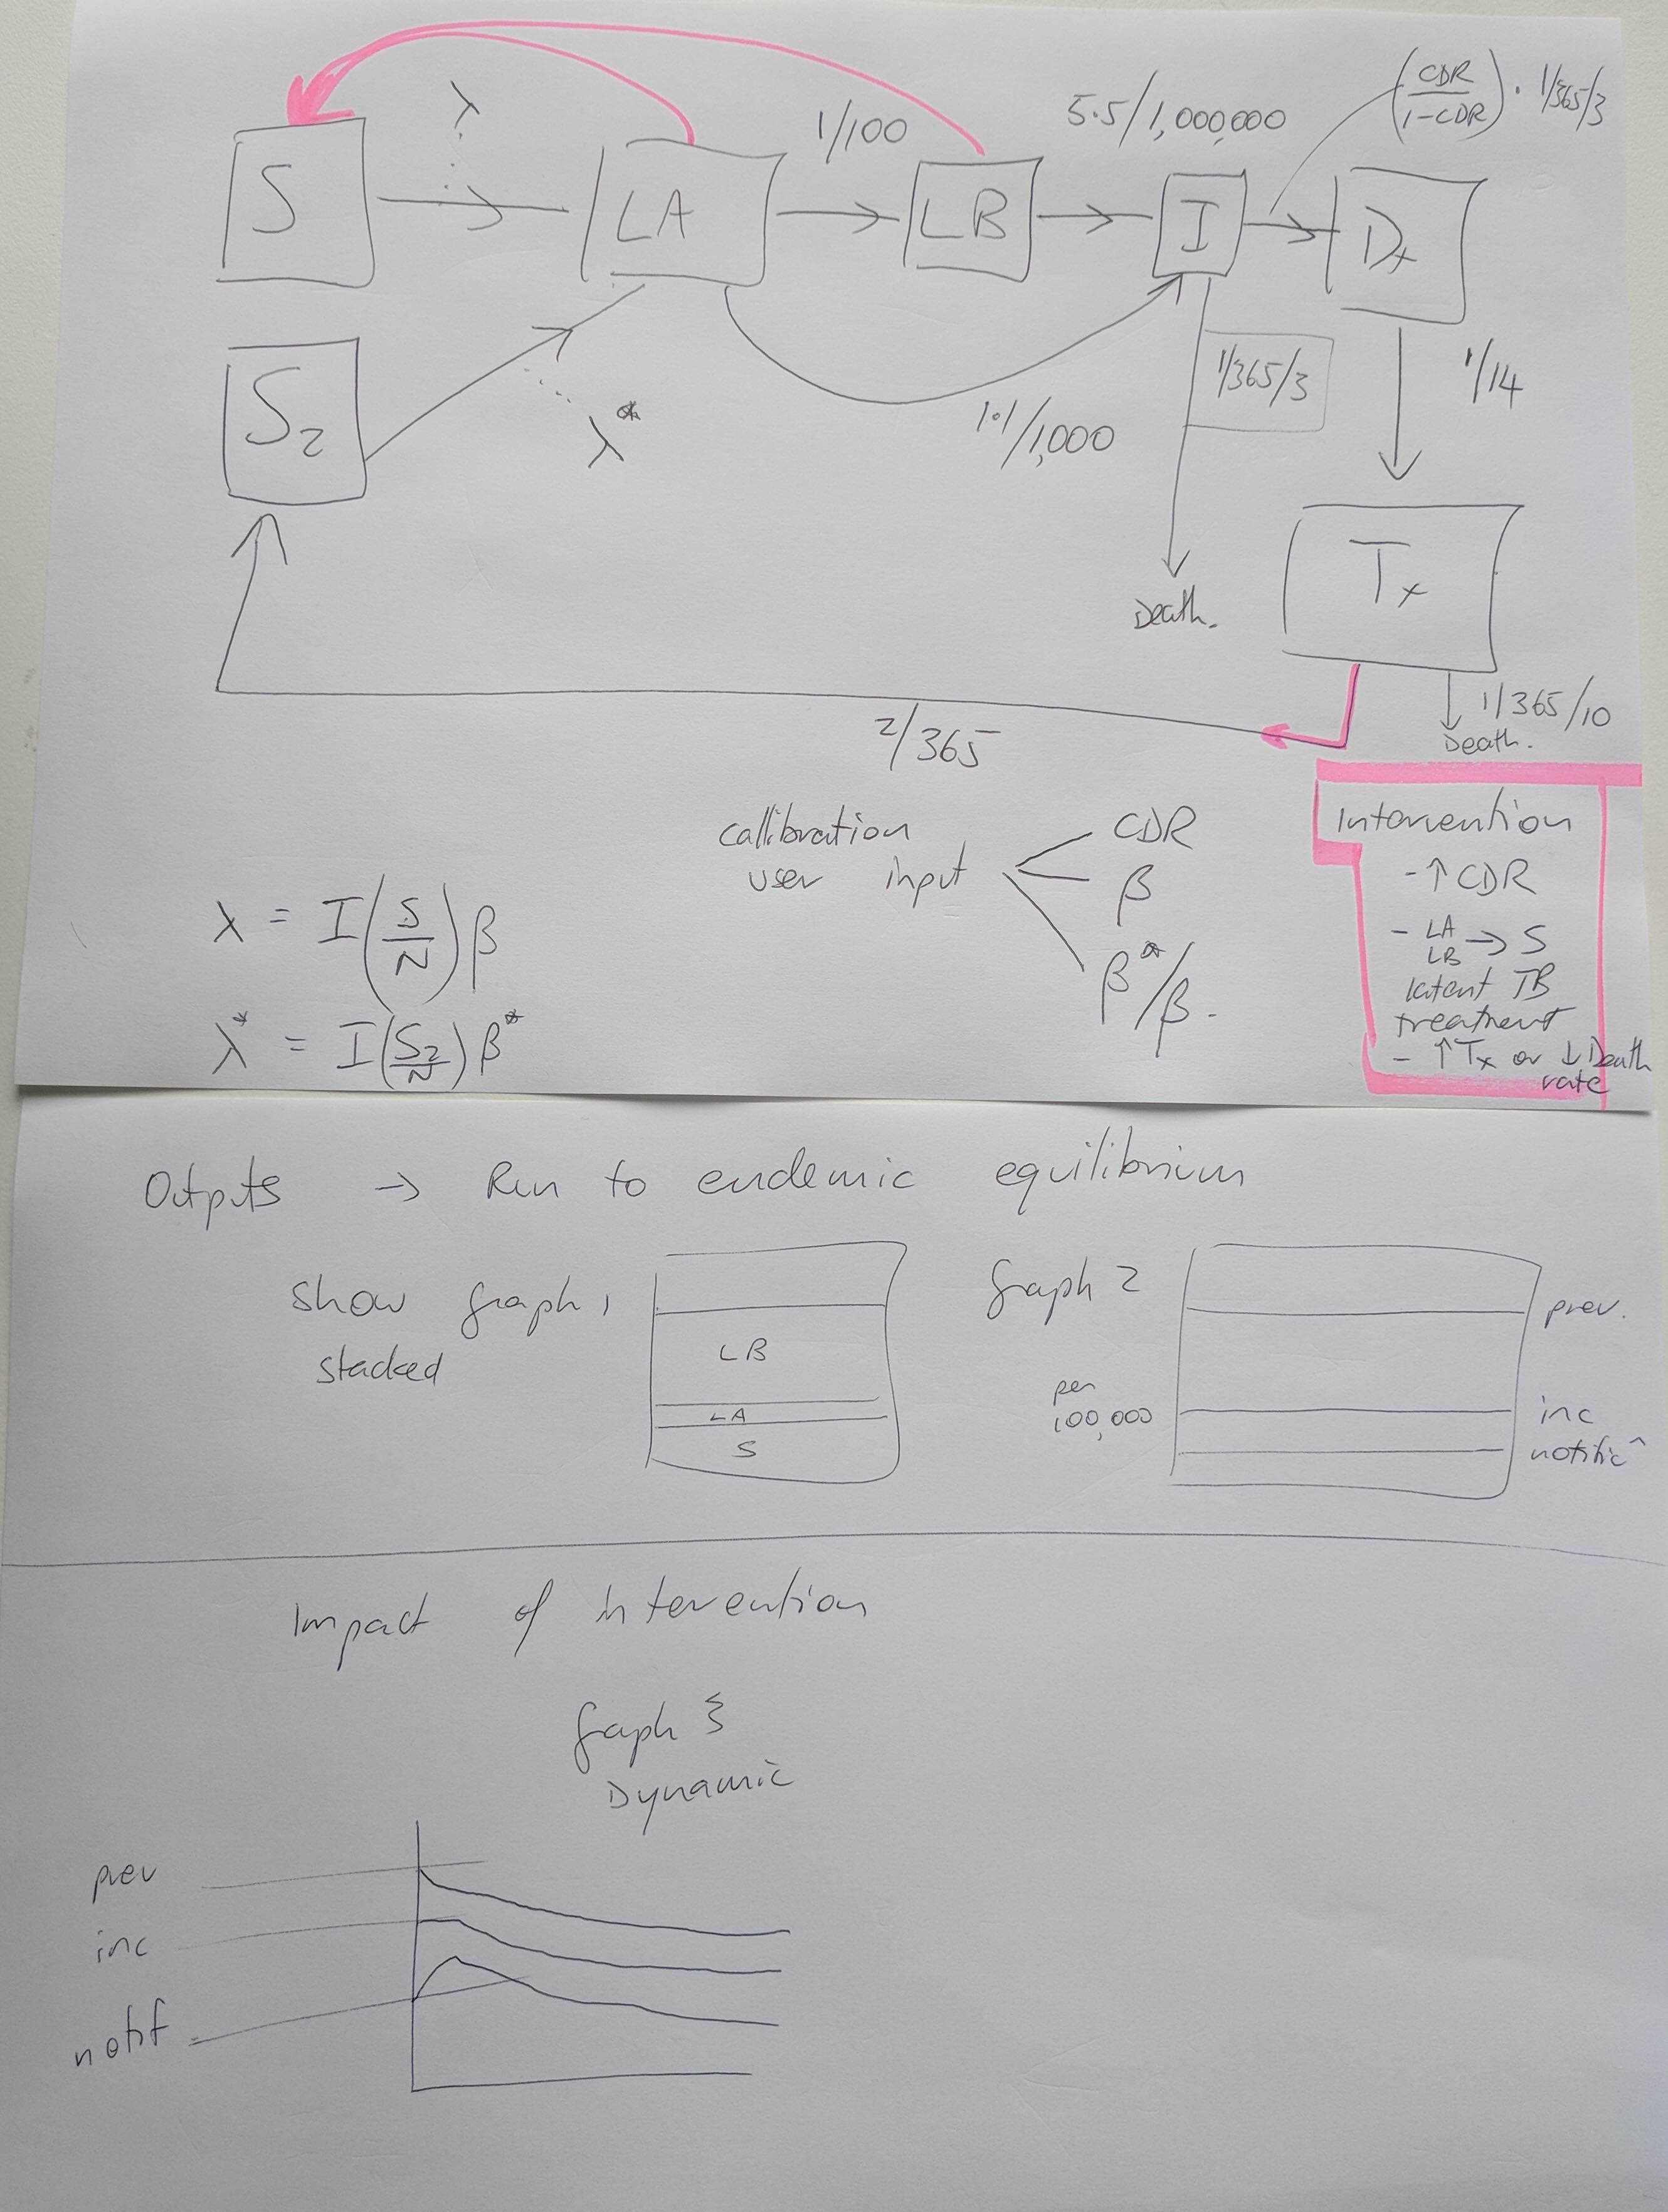 λ
1/100
5.5/1,000,000
(CDR/1-CDR) · 1/365/3
S
LA
LB
I
Dx
S2
λ*
1.1/1,000
1/365/3
1/14
Death.
Tx
2/365
1/365/10
Death.
callibration
user input
CDR
β
β*/β.
λ = I(S/N)β
λ* = I(S2/N)β*
Intervention
- ↑ CDR
- LA
LB → S
latent TB
treatment
- ↑ Tx or ↓ Death
rate
Outputs → Run to endemic equilibrium
Show graph 1
stacked
LB
LA
S
Graph 2
per
100,000
prev.
inc
notific^
Impact of intervention
Graph 3
Dynamic
prev
inc
notif